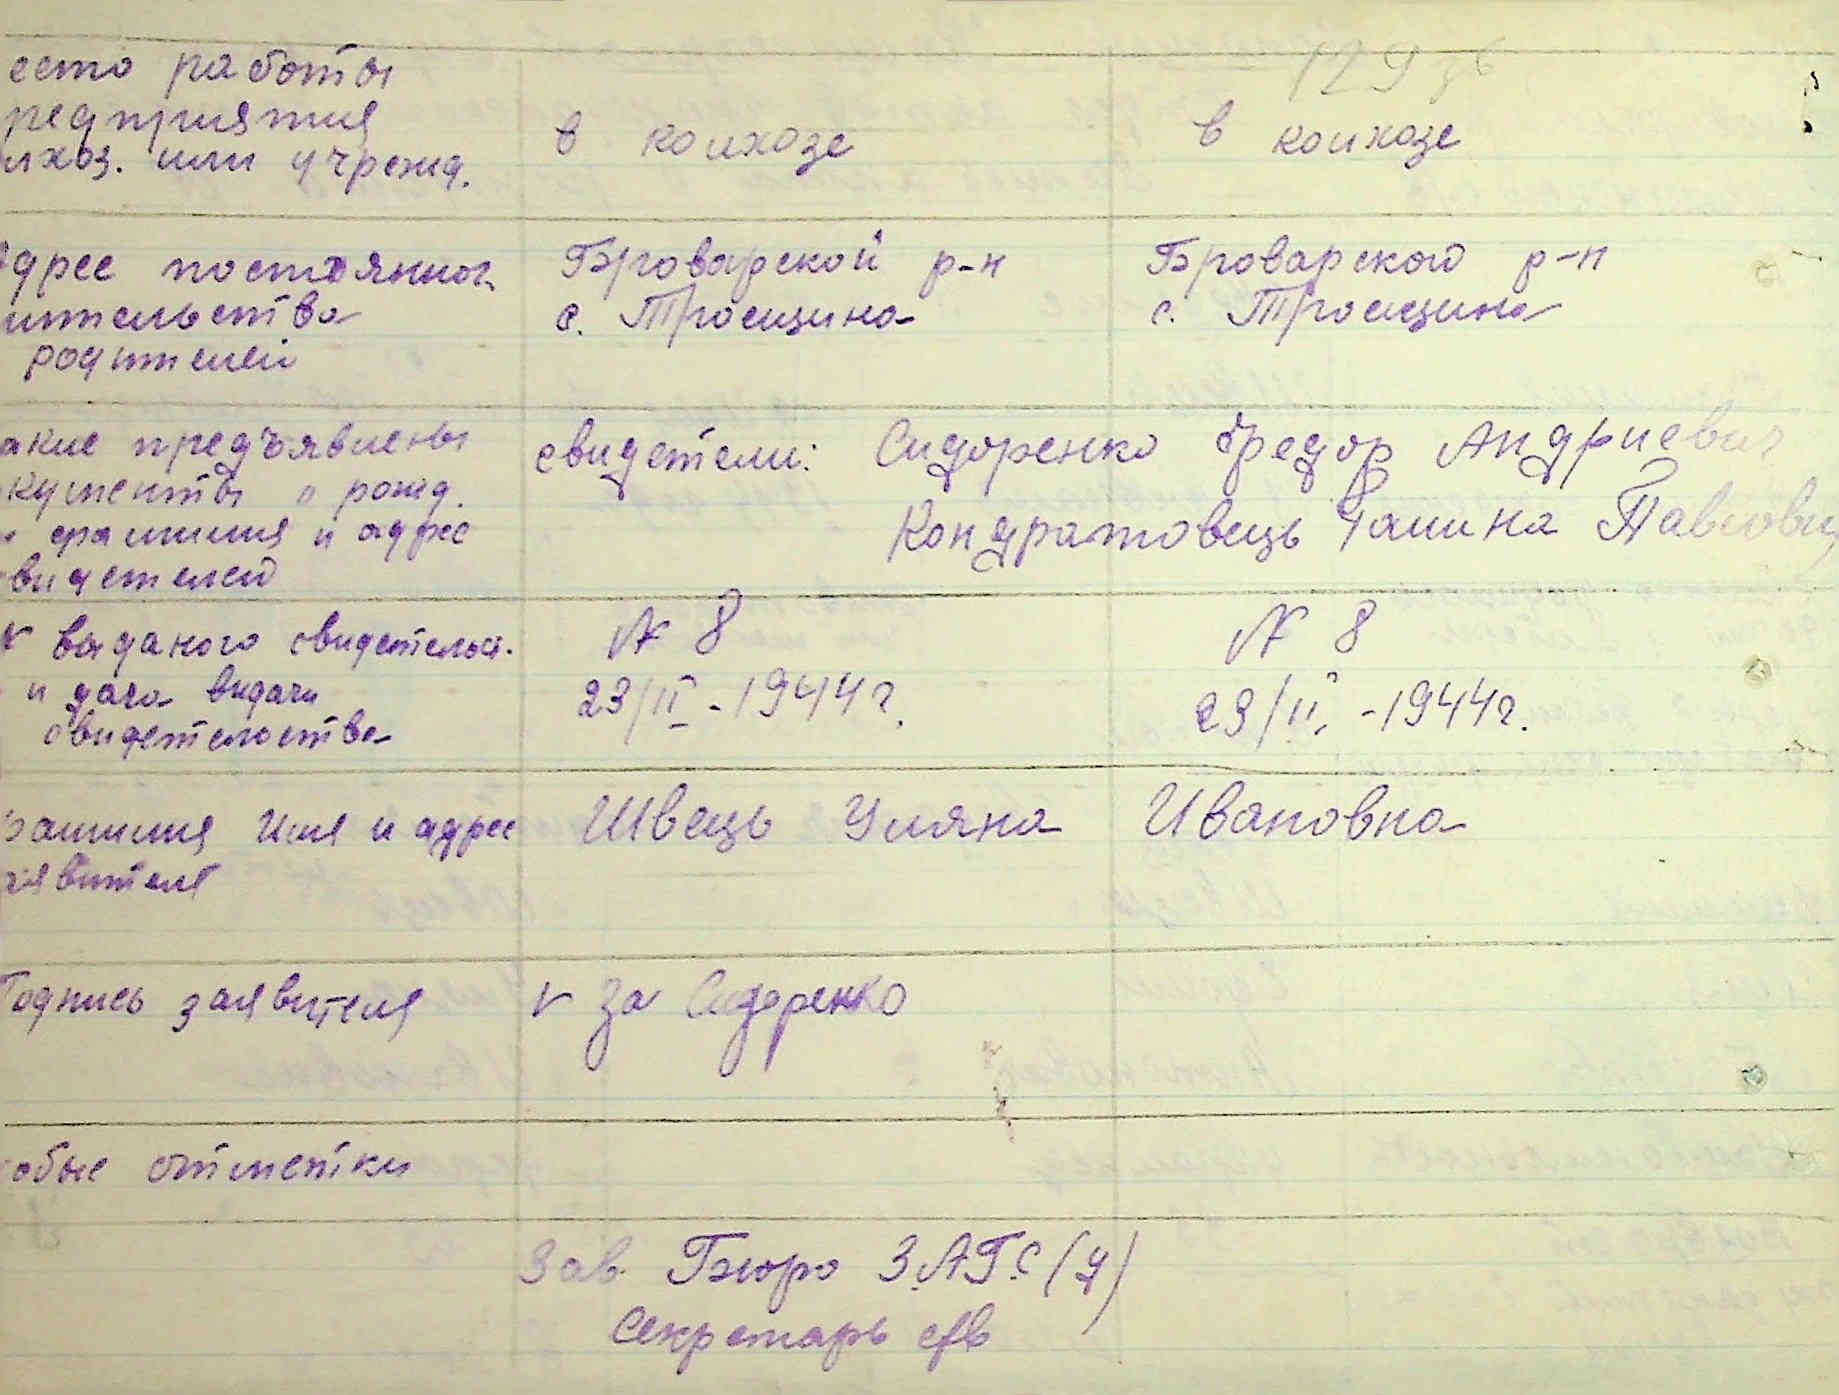 129 зв
есто работы
редприятия
лхоз. или учрежд.
в колхозе
в колхозе
дрес постоянног.
ительства
родителей
Броварской р-н
с. Троещина
Броварской р-н
с. Троещина
акие предъявлены
кументы о рожд.
фамилия и адрес
видетелей
свидетели: Сидоренко Федор Андриевич
Кондратовець Галина Павлови
№ выданого свидетельст.
и дата выдачи
свидетельства
№ 8
23/II-1944г.
№ 8
23/II-1944г.
фамилия Имя и адрес
заявителя
Швець Уляна Ивановна
Подпись заявителя
v За Сидоренко
обые отметки
Зав. Бюро ЗАГС (
Секретарь с/в